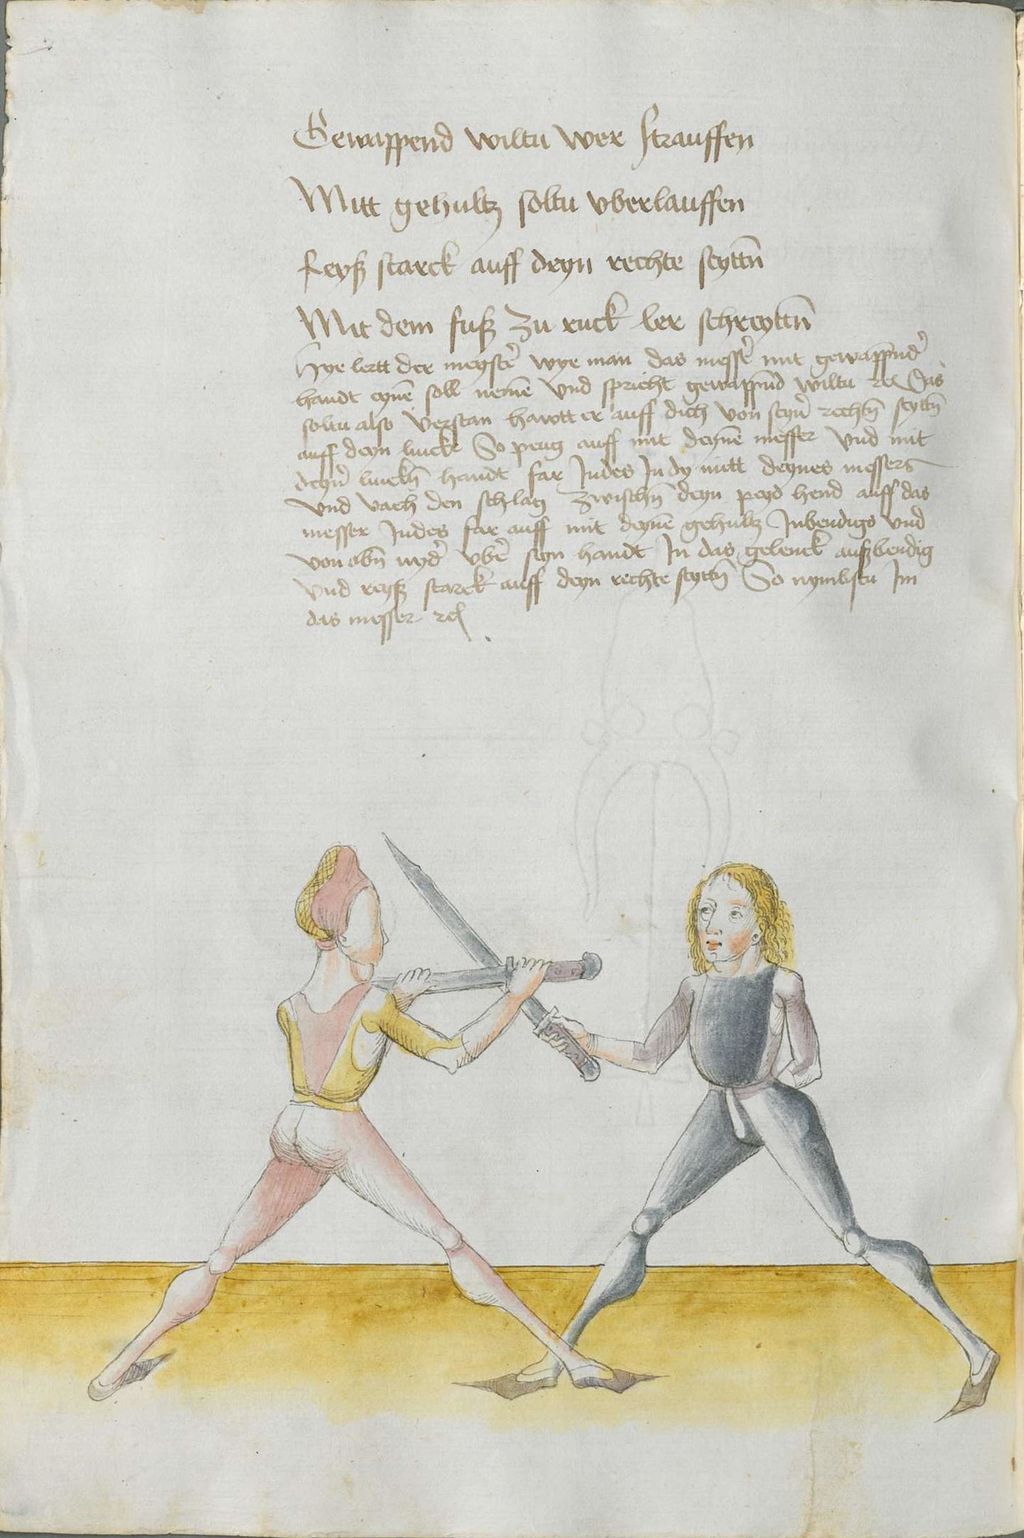 Gewappend wiltu wer strauffen
Mitt gehultz soltu vberlauffen
Reyß starck auff deyn rechte seyttñ
Mit dem fuß zu ruck ler schreyttñ
Hye lertt der meyster wye man das messer mit gewappnder
handt eynẽ soll nemẽ Vnd spricht gewappnd wiltu ⁊c Das
soltu also Verstan hawtt er auff dich von seyner rechtñ seyttñ
auff deyn lincke So peug auff mit deynẽ messer Vnd mit
deyner linckñ handt far Indes In dy mitt deynes messers
Vnd Vach den schlag zwischñ deyn peyd hend auff das
messer Indes far auff mit deynẽ gehultz Inbendigs Vnd
von obñ nyder vber seyn handt In das gelenck außbendig
Vnd reyß starck auff deyn rechte seyttñ So nymbstu Im
das messer ⁊c